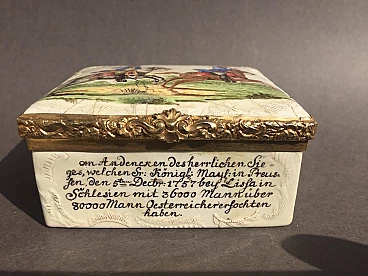 am Andencken des herrlichen Sie-
ges, welchen Sr: Königl: Mayt: in Preus-
sen, den 5ten Decbr: 1757 bey Lissa in
Schlesien mit 36000 Mann über
80000 Mann Oesterreicher erfochten
haben.